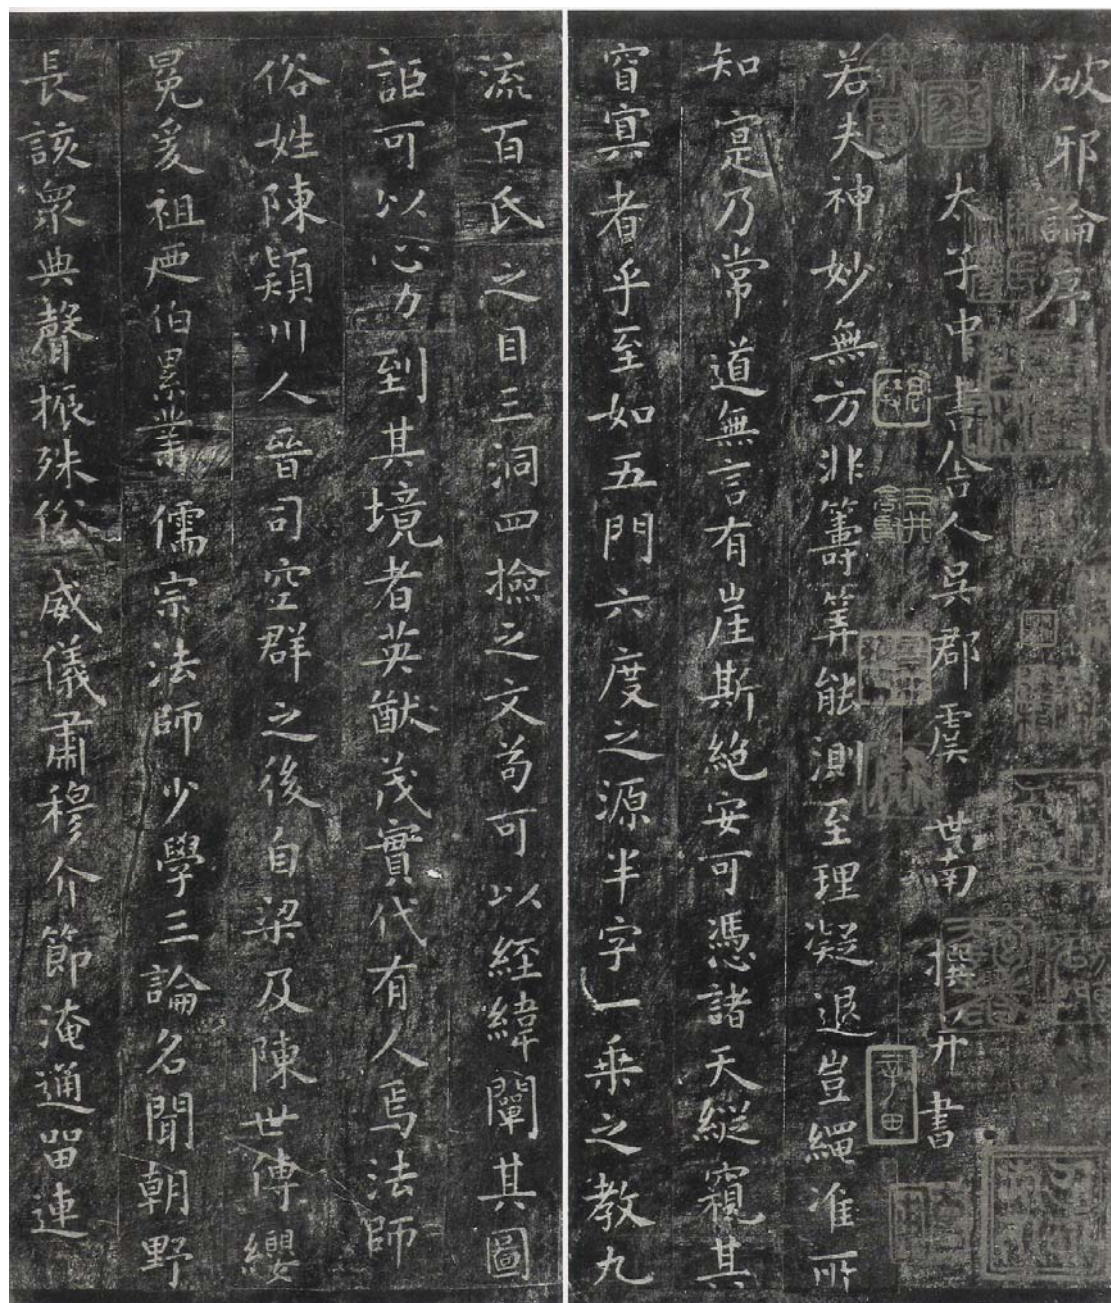 破邪論序
太子中書舍人吳郡虞世南撰并書
若夫神妙無方非籌筭能測至理凝退豈繩准所
知寔乃常道無言有崖斯絶安可憑諸天縱窺其
窅寘者乎至如五門六度之源半字一乗之教九
流百氏之目三洞四撿之文苟可以經緯闡其圖
詎可以心力到其境者英猷茂實代有人焉法師
俗姓陳潁川人晉司空群之後自梁及陳世傳纓
冕爰祖
伯累業儒宗法師少學三論名聞朝野
長該衆典聲振殊俗威儀肅穆介節淹通留連